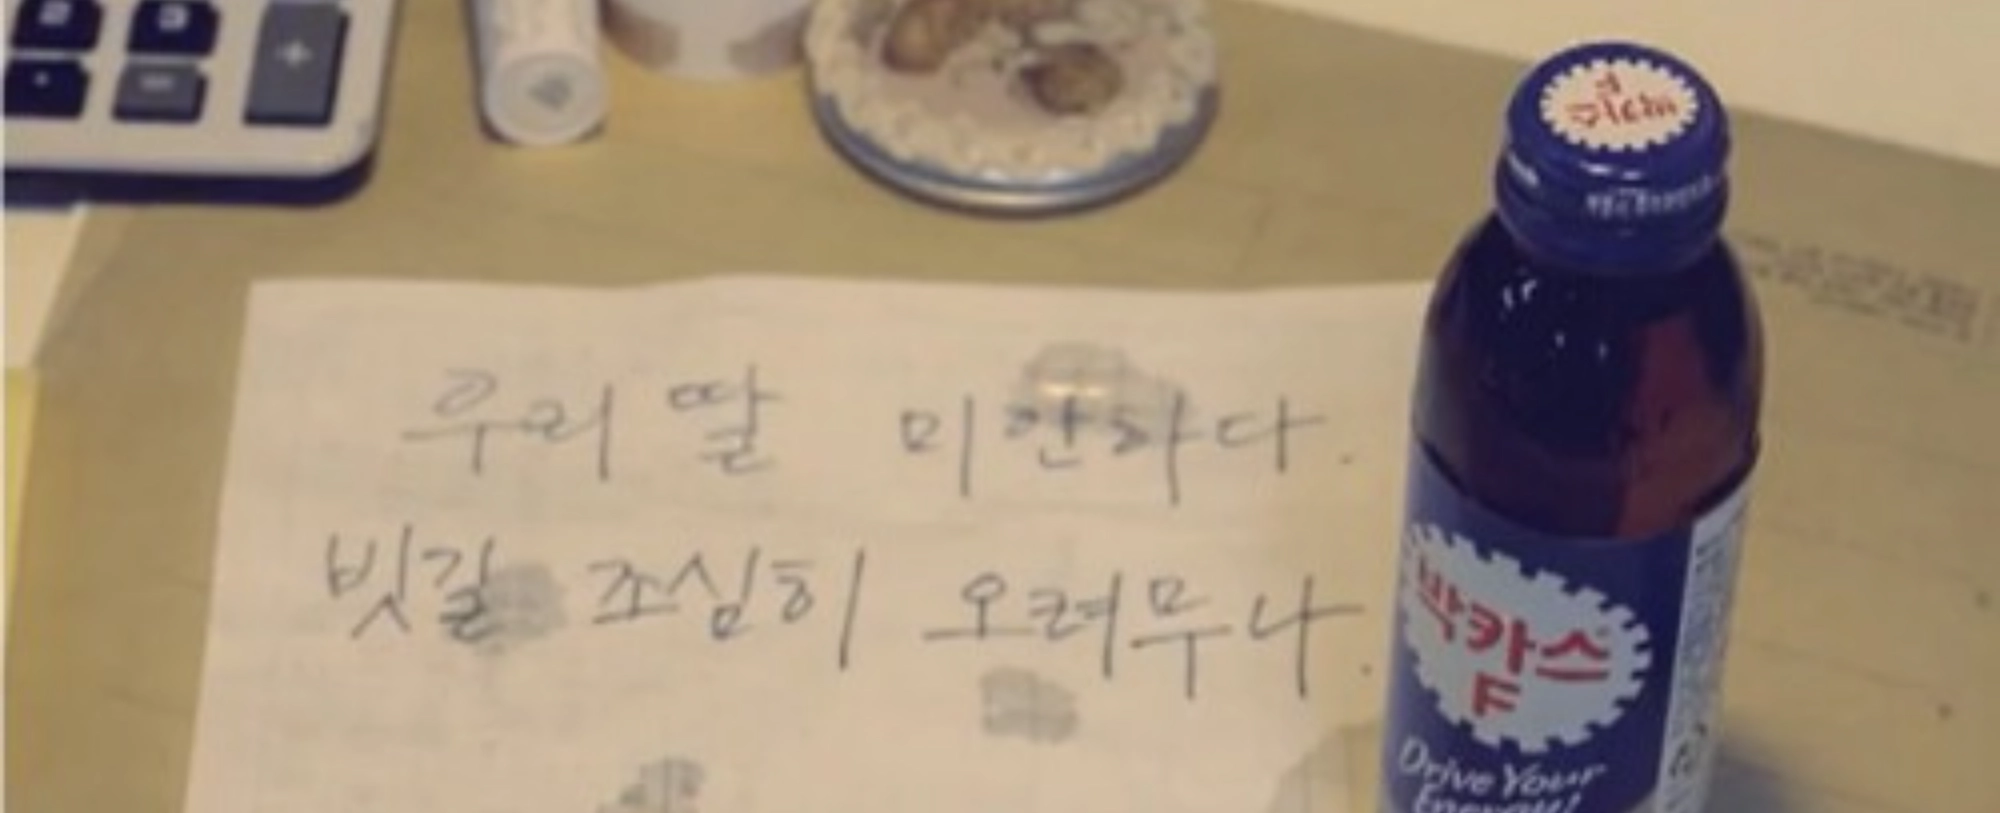 우리 딸 미안하다.
빗길 조심히 오려무나.
박카스
F
Drive Your
Energy!